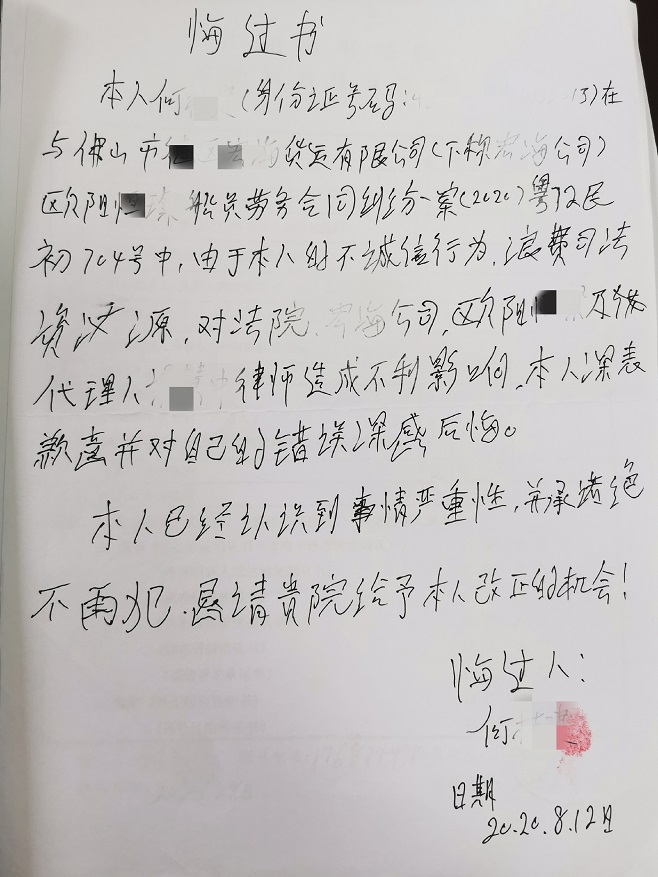 悔过书
本人何（身份证号码：13）在
与佛山市海货运有限公司（下称宏海公司）
欧阳恒船员劳务合同纠纷一案（2020）粤72民
初704号中，由于本人的不诚信行为，浪费司法
资源，对法院、宏海公司，欧阳及
代理人律师造成不利影响，本人深表
歉意并对自己的错误深感后悔。
本人已经认识到事情严重性，并承诺绝
不再犯，恳请贵院给予本人改正的机会！
悔过人：
何
日期
2020.8.12日